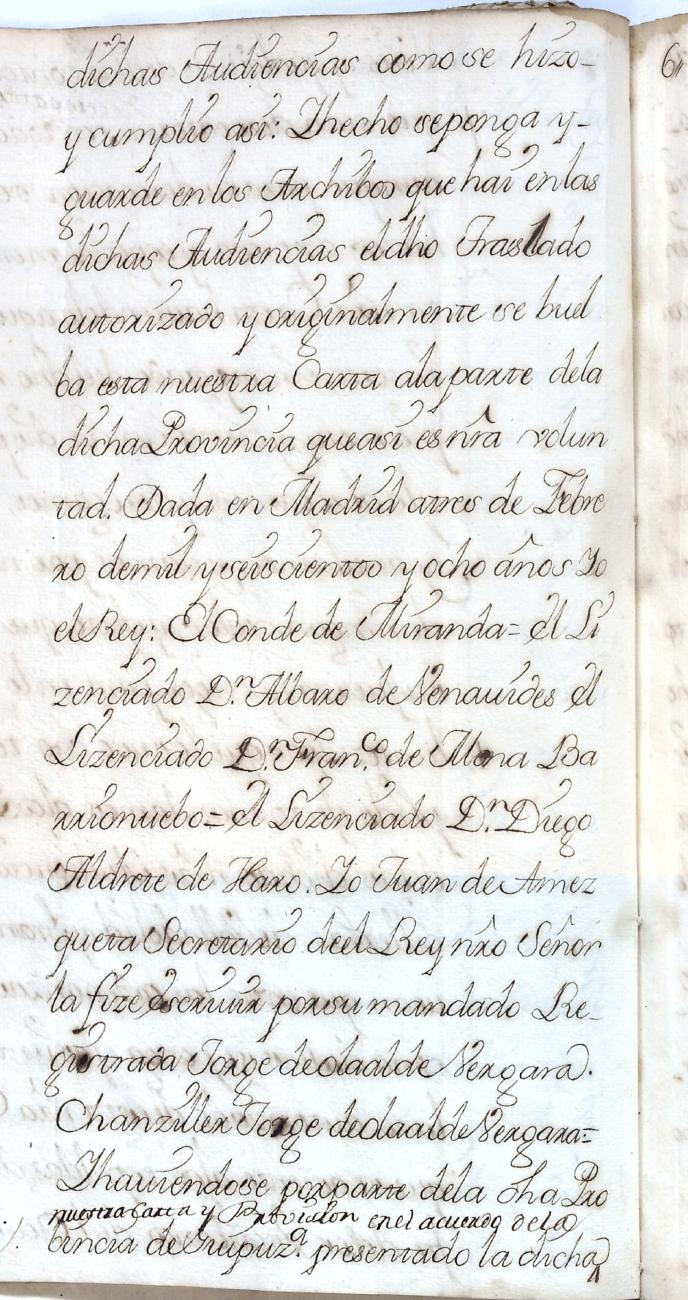 dichas Audiencias como se hizo-
y cumplio asi: Yhecho seponga y-
guarde en los Archibos que hai en las
dichas Audiencias el dho Traslado
autorizado y originalmente se buel
ba esta nuestra Carta ala parte dela
dicha Provincia que asi es nrã volun
tad. Dada en Madrid atres de Febre
ro demil y seiscientos y ocho años Yo
el Rey: El Conde de Miranda= el Li
zenciado D.n Albaro de Venauides el
Lizenciado D.n Fran.co de Mena Ba
rrionuebo= el Lizenciado D.n Diego
Aldrete de Haro. Yo Juan de Amez
queta Secretario deel Rey nrõ Señor
la fize escriuir por su mandado Re-
gistrada Jorge de olaalde Vergara.
Chanziller Jorge de olaalde Vergara=
Yhauiendose por parte dela dha Pro
nuestra Carta y Probision en el acuerdo de la
bincia de Guipuz.a presentado la dicha
6